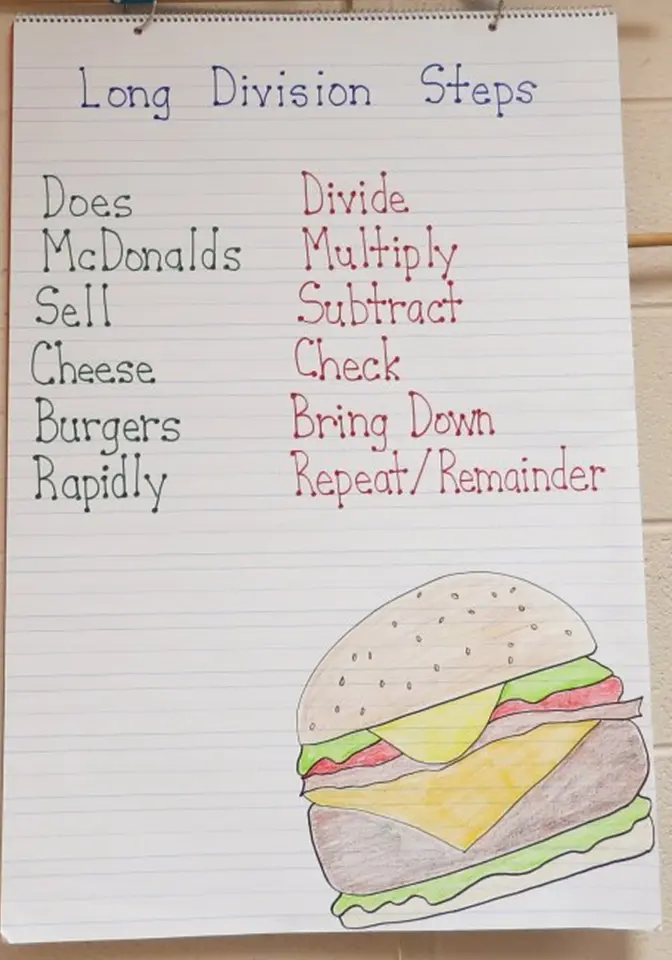 Long Division Steps
Does Divide
McDonalds Multiply
Sell Subtract
Cheese Check
Burgers Bring Down
Rapidly Repeat/Remainder